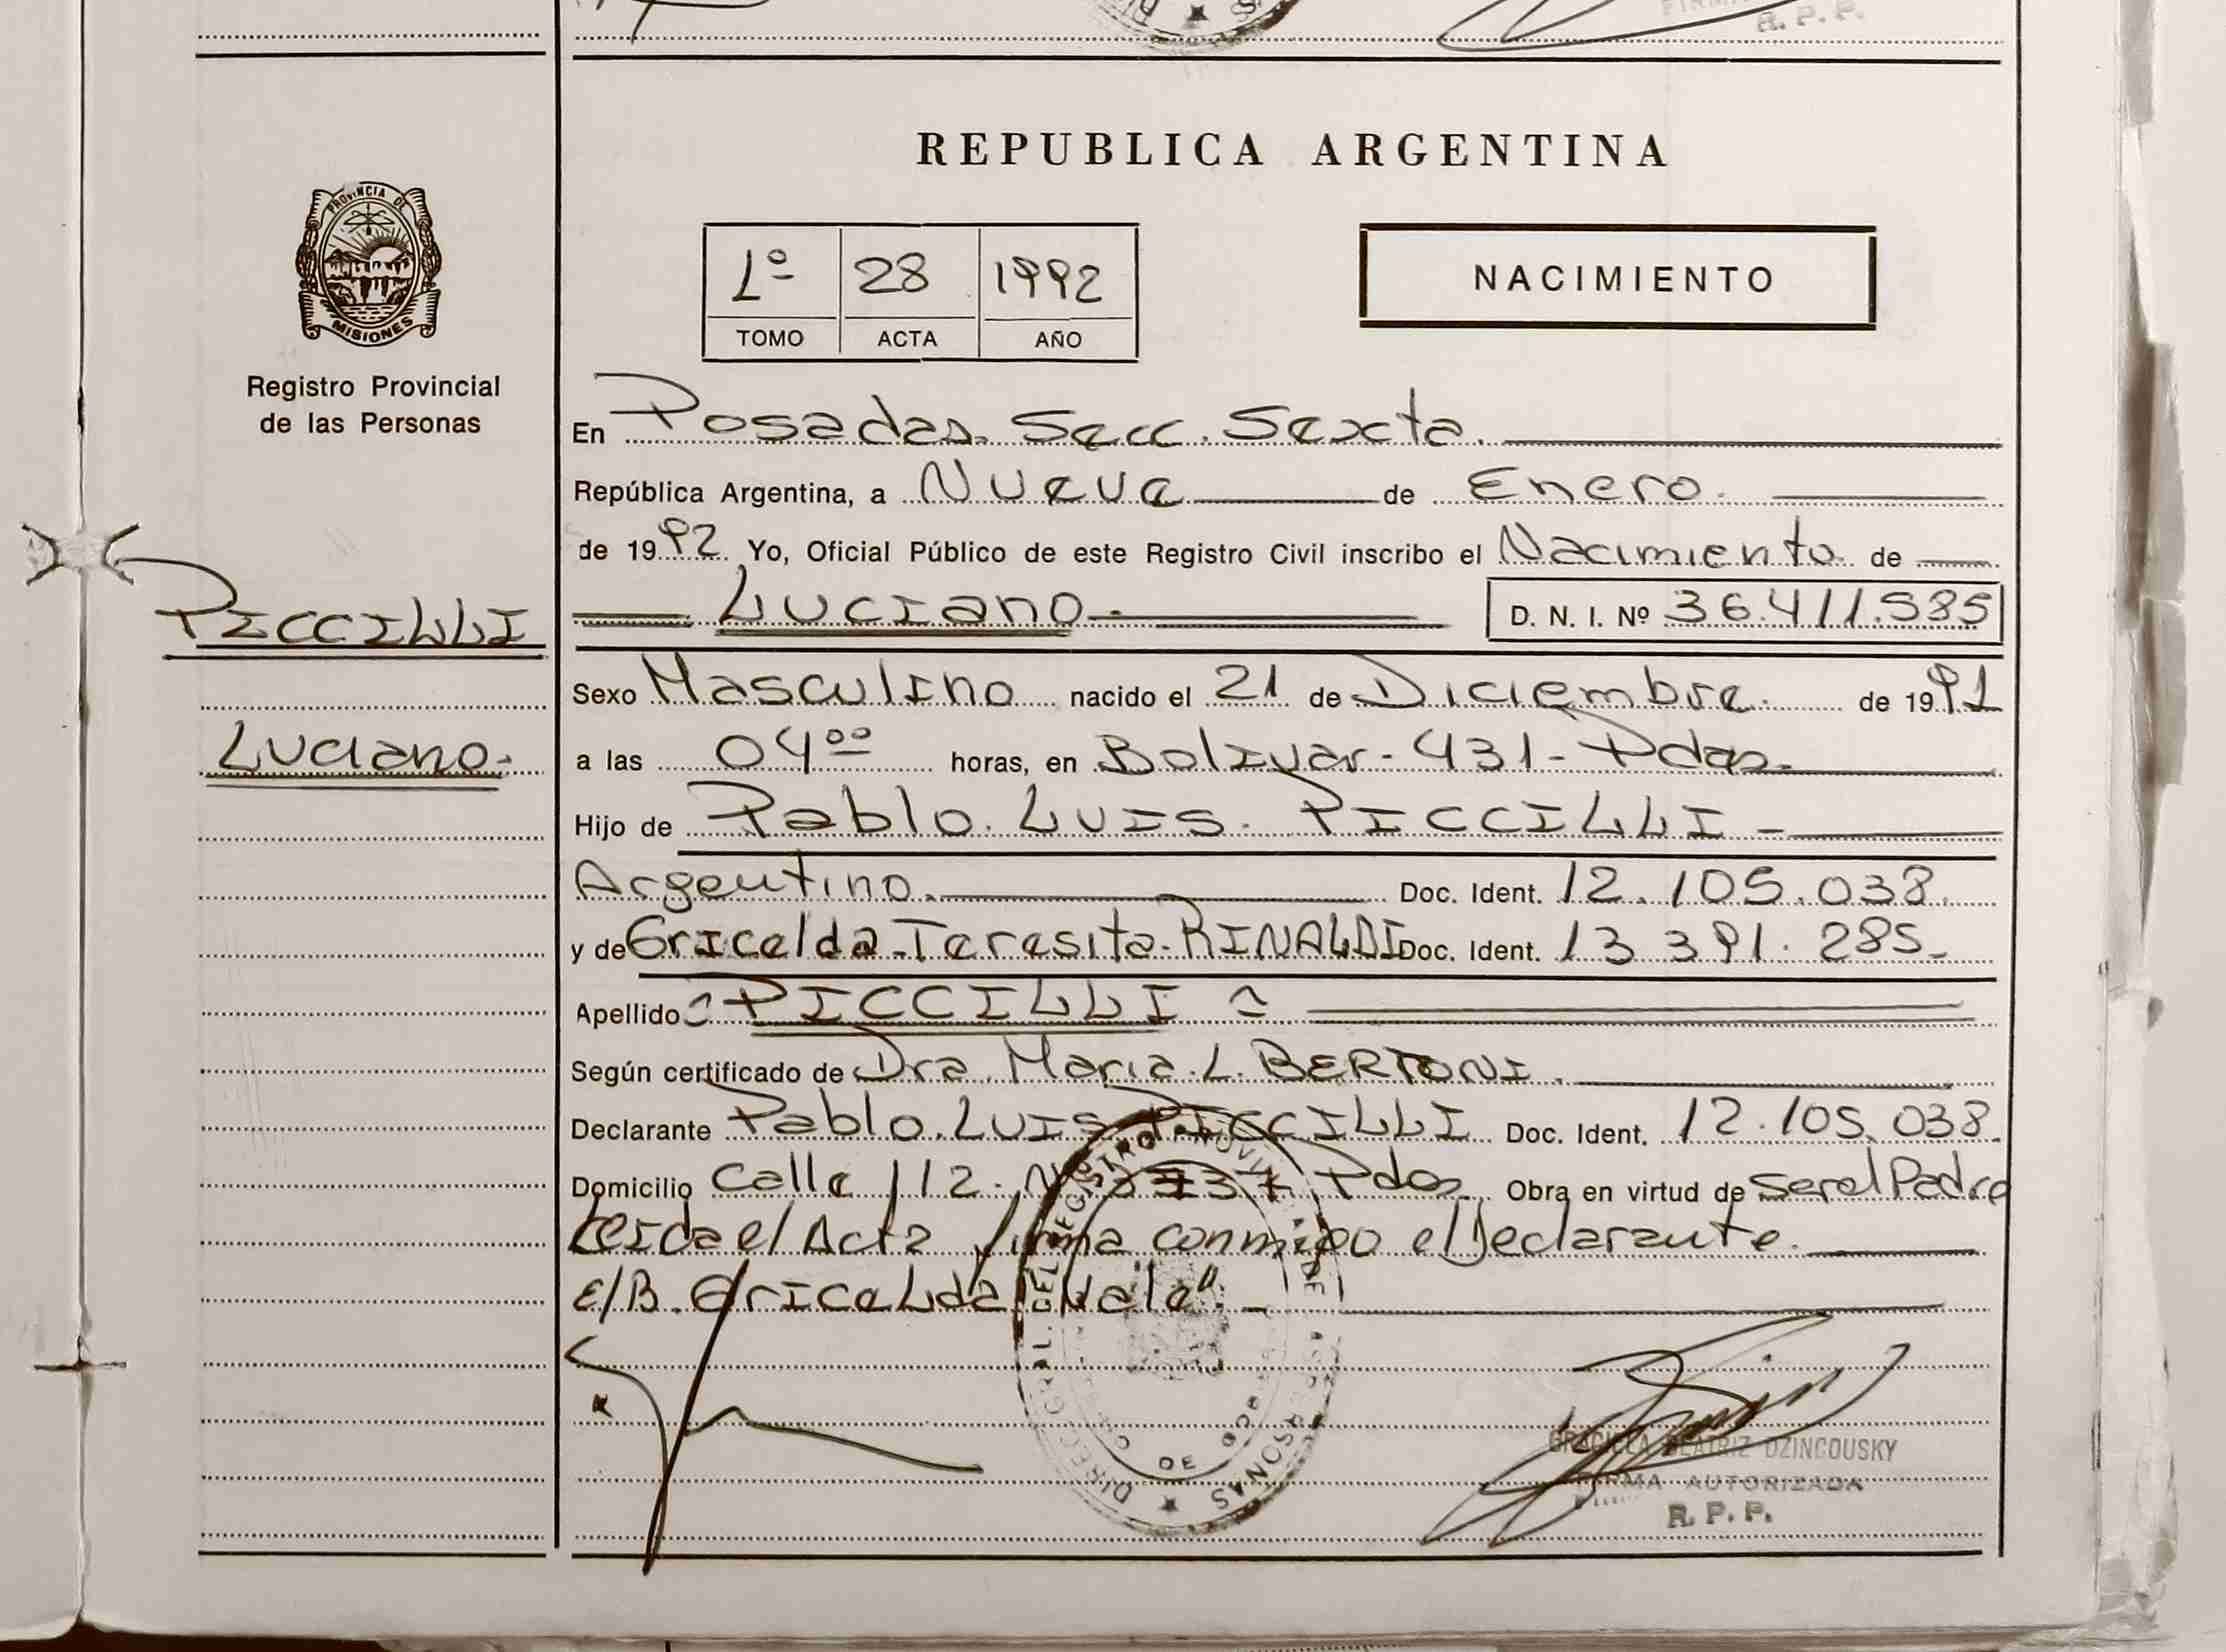 R. P. P.
REPUBLICA ARGENTINA
PROVINCIA DE
MISIONES
Registro Provincial
de las Personas
Lº 28 1992
TOMO ACTA AÑO
NACIMIENTO
En Posadas. Secc. Sexta.
República Argentina, a Nueve de Enero.
de 1992 Yo, Oficial Público de este Registro Civil inscribo el Nacimiento de
Luciano D. N. I. Nº 36.411.585
PICCILLI
Luciano.
Sexo Masculino nacido el 21 de Diciembre. de 1991
a las 04ºº horas, en Bolivar - 431 - Pdas.
Hijo de Pablo. Luis. PICCILLI -
Argentino. Doc. Ident. 12.105.038.
y de Gricelda - Teresita - RINALDI Doc. Ident. 13 391.285-
Apellido PICCILLI
Según certificado de Dra. Maria. L. BERTONI.
Declarante Pablo. Luis. PICCILLI Doc. Ident. 12.105.038.
Domicilio Calle 112. Pdas. Obra en virtud de ser el Padre
Leida el Acta firma conmigo el Declarante.
E/B. Gricelda "Vale". -
DIREC. GRAL. DEL REGISTRO PROVINCIAL DE LAS PERSONAS
GRACIELA BEATRIZ DZINCOUSKY
FIRMA AUTORIZADA
R. P. P.